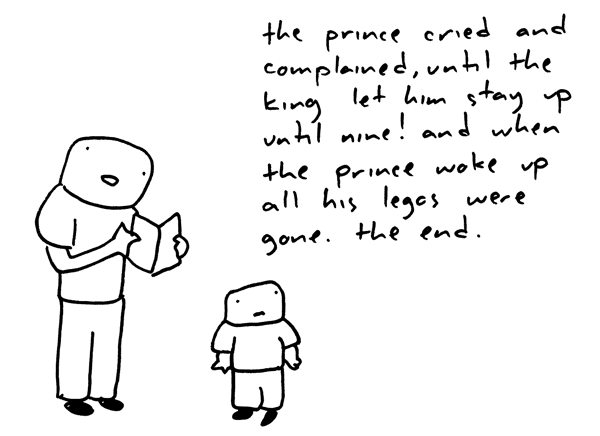 the prince cried and
complained, until the
king let him stay up
until nine! and when
the prince woke up
all his legos were
gone. the end.